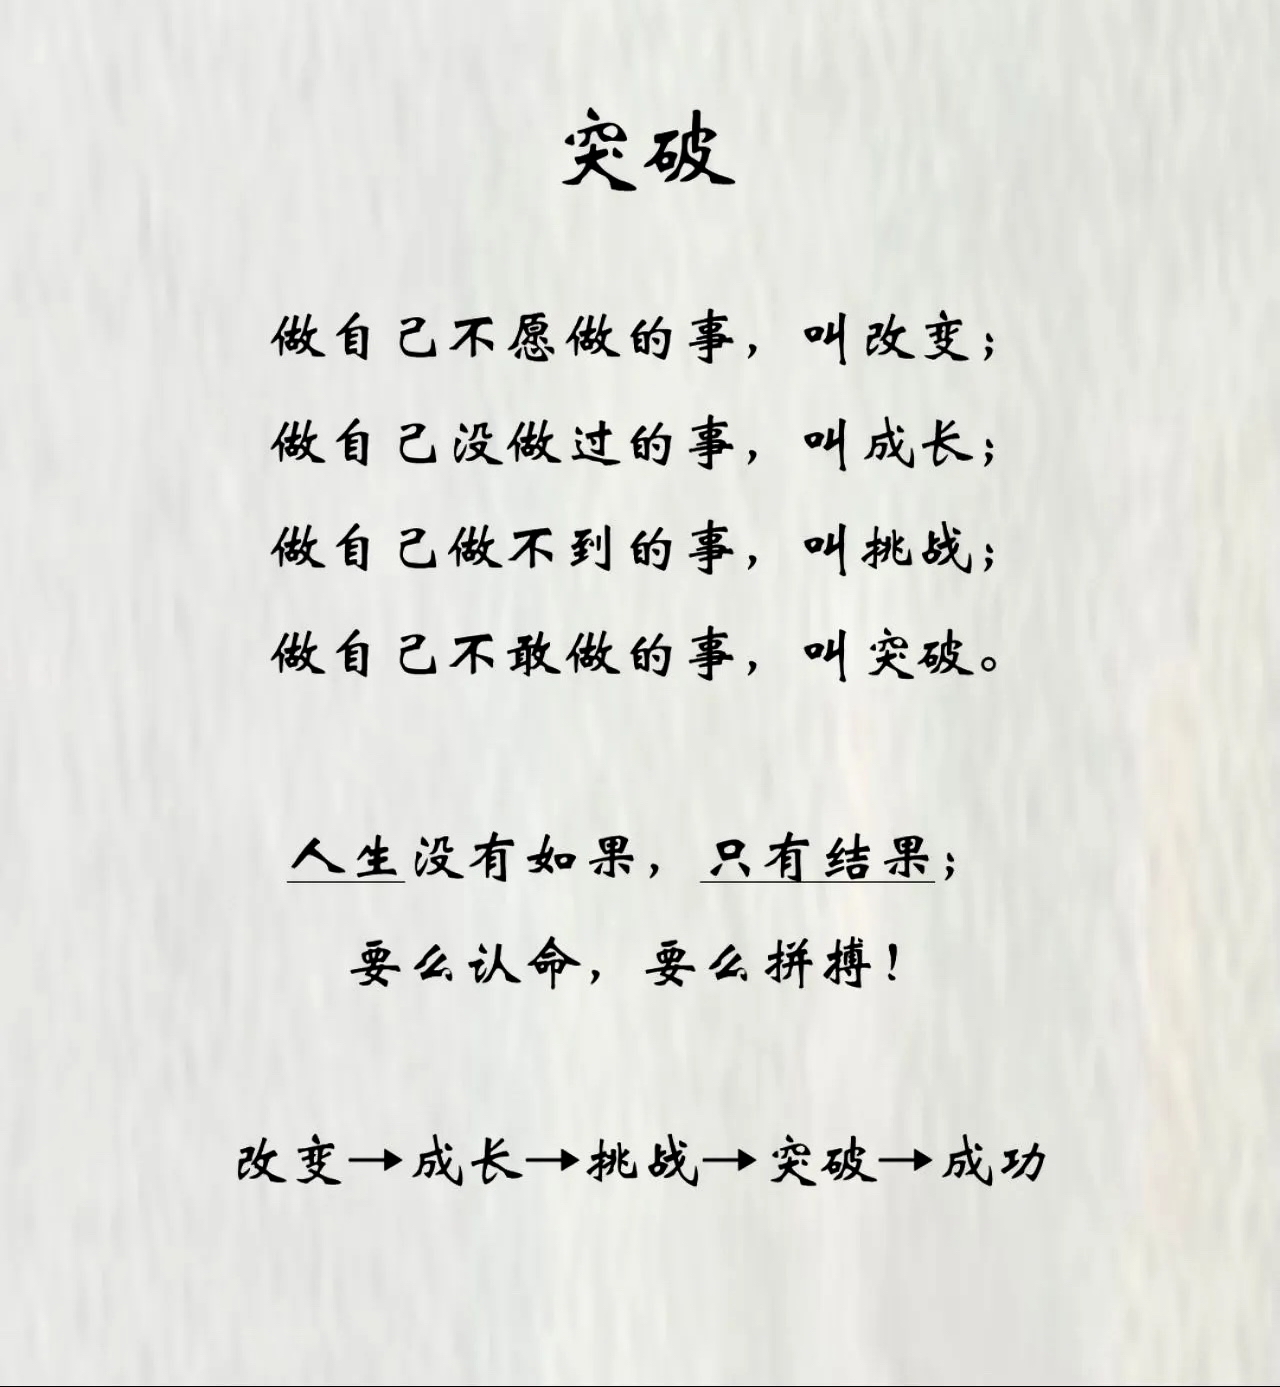 突破
做自己不愿做的事，叫改变；
做自己没做过的事，叫成长；
做自己做不到的事，叫挑战；
做自己不敢做的事，叫突破。
人生没有如果，只有结果；
要么认命，要么拼搏！
改变→成长→挑战→突破→成功